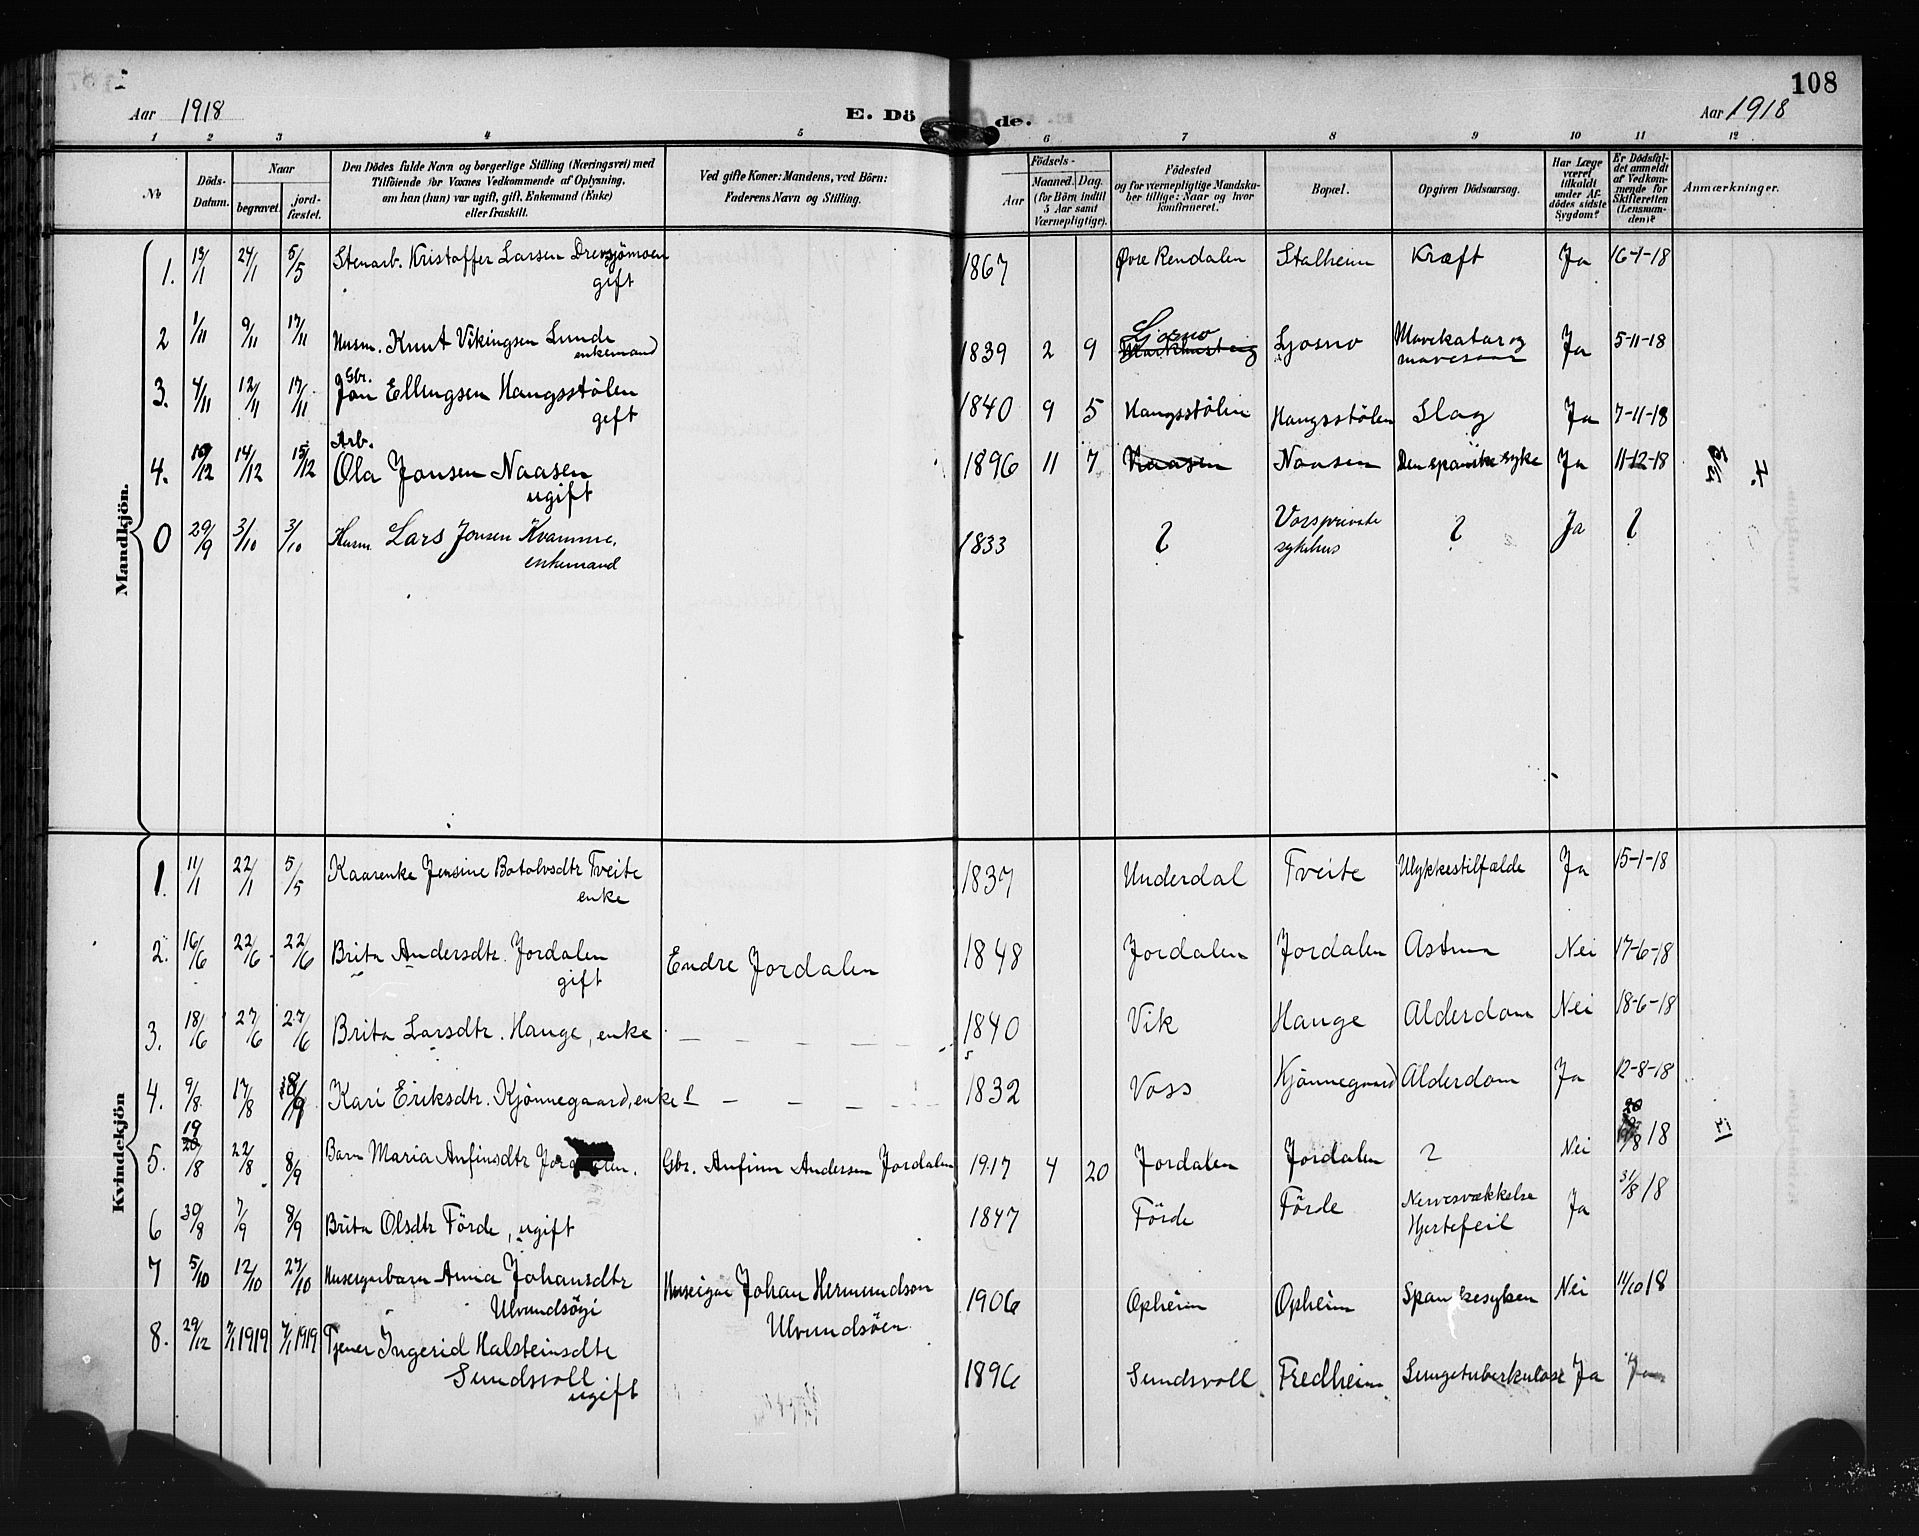 108
Aar 1918
E. Döde.
Aar 1918
1 2 3 4 5 6 7 8 9 10 11 12
No
Döds-Datum.
Naar
begravet.
jordfæstet.
Den Dödes fulde Navn og borgerlige Stilling (Næringsvei) med
Tilföiende for Voxnes Vedkommende af Oplysning,
om han (hun) var ugift, gift, Enkemand (Enke)
eller fraskilt.
Ved gifte Koner: Mandens, ved Börn:
Faderens Navn og Stilling.
Födsels-
Aar
Maaned. Dag.
(for Börn indtil
5 Aar samt
Værnepligtige).
Födested
og for værnepligtige Mandskaber tillige: Naar og hvor
konfirmeret.
Bopæl.
Opgiven Dödsaarsag.
Har Læge
været
tilkaldt
under Afdödes sidste
Sygdom?
Er Dödsfaldet anmeldt
af Vedkommende for
Skifteretten
(Lensmanden)?
Anmærkninger.
Mandkjön.
1. 13/1 24/1 5/5 Stenarb. Kristoffer Larsen Drevsjömoen 1867 Øvre Rendalen Stalheim Kræft Ja 16-1-18
gift
2 1/11 9/11 17/11 Husm. Knut Vikingsen Lunde 1839 2 9 Ljosno Ljosno Mavekatar og Ja 5-11-18
enkemand mavesaar
3. 4/11 12/11 17/11 Gbr. Jon Ellingsen Haugsstølen 1840 9 5 Haugsstølen Haugsstølen Slag Ja 7-11-18
gift
Arb.
4. 10/12 14/12 15/12 Ola Jonsen Naasen 1896 11 7 Naasen Naasen Den spanske syke Ja 11-12-18
ugift
0 29/9 3/10 3/10 Husm Lars Jonsen Kvamme, 1833 ? Vossprivate ? Ja ?
enkemand sykehus
Kvindekjön
1. 11/1 22/1 5/5 Kaarenke Jensine Botolvsdtr Tveite 1837 Underdal Tveite Ulykkestilfælde Ja 15-1-18
enke
2. 16/6 22/6 22/6 Brita Andersdtr. Jordalen Endre Jordalen 1848 Jordalen Jordalen Astma Nei 17-6-18
gift
3. 18/6 27/6 27/6 Brita Larsdtr. Hauge, enke 1840 Vik Hauge Alderdom Nei 18-6-18
4. 9/8 17/8 8/9 Kari Eriksdtr. Kjønnegaard, enke 1832 Voss Kjønnegaard Alderdom Ja 12-8-18
5. 19/8 22/8 8/9 Barn Maria Anfinsdtr Jordalen. Gbr. Anfinn Andersen Jordalen 1917 4 20 Jordalen Jordalen ? Nei 18
6 30/8 7/9 8/9 Brita Olsdtr Förde, ugift 1847 Förde Förde Nervesvækkelse Ja 31/8 18
Hjertefeil
7 5/10 12/10 27/10 Anna Johansdtr Huseigar Johan Hermundson 1906 Opheim Opheim Spanskesyken Nei 11/10 18
Ulvundsöyi Ulvundsöen
8. 29/12 7/1 1919 7/1 1919 Tjener Ingerid Halsteinsdtr 1896 Sundsvoll Fredheim Lungetuberkulose Ja Ja
Sundsvoll
ugift